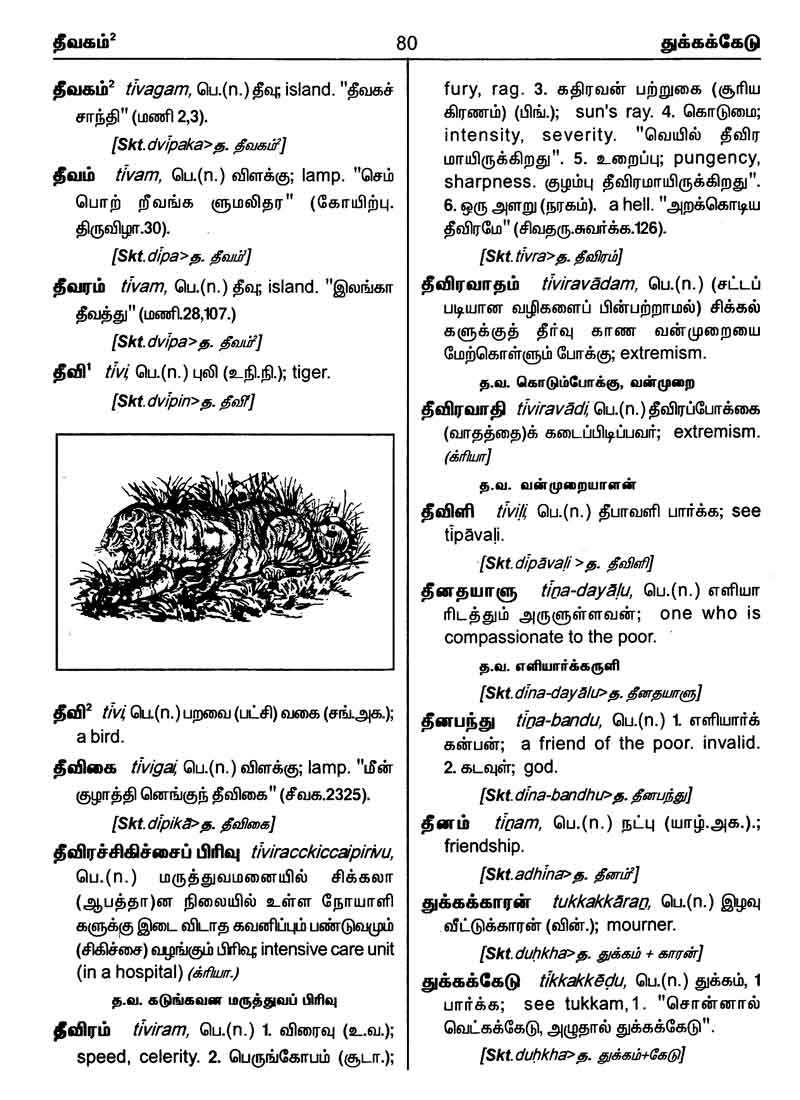 தீவகம்² 80 துக்கக்கேடு
தீவகம்² tīvagam, பெ.(n.) தீவு; island. "தீவகச்
சாந்தி" (மணி 2,3).
[Skt.dvīpaka>த. தீவகம்²]
தீவம் tīvam, பெ.(n.) விளக்கு; lamp. "செம்
பொற் றீவங்க ளுமலிதர" (கோயிற்பு.
திருவிழா.30).
[Skt.dīpa>த. தீவம்¹]
தீவரம் tīvam, பெ.(n.) தீவு; island. "இலங்கா
தீவத்து" (மணி.28,107.)
[Skt.dvīpa>த. தீவம்²]
தீவி¹ tīvi, பெ.(n.) புலி (உ.நி.நி.); tiger.
[Skt.dvīpin>த. தீவி¹]
தீவி² tīvi, பெ.(n.) பறவை (பட்சி) வகை (சங்.அக.);
a bird.
தீவிகை tīvigai, பெ.(n.) விளக்கு; lamp. "மீன்
குழாத்தி னெங்குந் தீவிகை" (சீவக.2325).
[Skt.dīpikā>த. தீவிகை]
தீவிரச்சிகிச்சைப் பிரிவு tīviracckiccaipirivu,
பெ.(n.) மருத்துவமனையில் சிக்கலா
(ஆபத்தா)ன நிலையில் உள்ள நோயாளி
களுக்கு இடை விடாத கவனிப்பும் பண்டுவமும்
(சிகிச்சை) வழங்கும் பிரிவு; intensive care unit
(in a hospital) (க்ரியா.)
த.வ. கடுங்கவன மருத்துவப் பிரிவு
தீவிரம் tīviram, பெ.(n.) 1. விரைவு (உ.வ.);
speed, celerity. 2. பெருங்கோபம் (சூடா.);
fury, rag. 3. கதிரவன் பற்றுகை (சூரிய
கிரணம்) (பிங்.); sun's ray. 4. கொடுமை;
intensity, severity. "வெயில் தீவிர
மாயிருக்கிறது". 5. உறைப்பு; pungency,
sharpness. குழம்பு தீவிரமாயிருக்கிறது".
6. ஒரு அளறு (நரகம்). a hell. "அறக்கொடிய
தீவிரமே" (சிவதரு.சுவர்க்க.126).
[Skt.tīvra>த. தீவிரம்]
தீவிரவாதம் tīviravādam, பெ.(n.) (சட்டப்
படியான வழிகளைப் பின்பற்றாமல்) சிக்கல்
களுக்குத் தீர்வு காண வன்முறையை
மேற்கொள்ளும் போக்கு; extremism.
த.வ. கொடும்போக்கு, வன்முறை
தீவிரவாதி tīviravādi, பெ.(n.) தீவிரப்போக்கை
(வாதத்தை)க் கடைப்பிடிப்பவர்; extremism.
(க்ரியா]
த.வ. வன்முறையாளன்
தீவிளி tīviḷi, பெ.(n.) தீபாவளி பார்க்க; see
tīpāvaḷi.
[Skt.dīpāvaḷi >த. தீவிளி]
தீனதயாளு tīṉa-dayāḷu, பெ.(n.) எளியா
ரிடத்தும் அருளுள்ளவன்; one who is
compassionate to the poor.
த.வ. எளியார்க்கருளி
[Skt.dīna-dayālu>த. தீனதயாளு]
தீனபந்து tīṉa-bandu, பெ.(n.) 1. எளியார்க்
கன்பன்; a friend of the poor. invalid.
2. கடவுள்; god.
[Skt.dīna-bandhu>த. தீனபந்து]
தீனம் tīṉam, பெ.(n.) நட்பு (யாழ்.அக.).;
friendship.
[Skt.adhīna>த. தீனம்²]
துக்கக்காரன் tukkakkāraṉ, பெ.(n.) இழவு
வீட்டுக்காரன் (வின்.); mourner.
[Skt.duḥkha>த. துக்கம் + காரன்]
துக்கக்கேடு tikkakkēḍu, பெ.(n.) துக்கம், 1
பார்க்க; see tukkam,1. "சொன்னால்
வெட்கக்கேடு, அழுதால் துக்கக்கேடு".
[Skt.duḥkha>த. துக்கம்+கேடு]